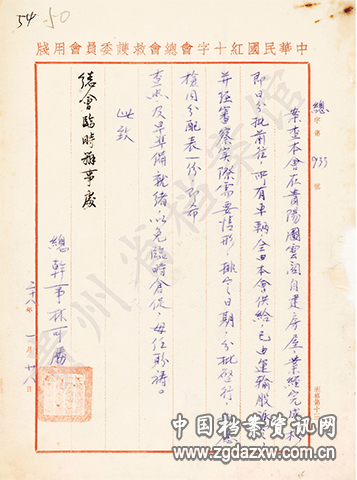 54-50
中華民國紅十字會總會救護委員會用牋
總字第933號
案查本會在貴陽圖雲關自建房屋業經完成
即日分批前往所有車輛全由本會供給已由運輸股
并經審察實際需要情形排定日期分批啓行
檢同分配表一份即希
查照及早準備就緒以免臨時倉促毋任盼禱。
此致
總會臨時辦事處
總幹事林可勝
二十八年一月廿八日
中国档案资讯网
www.zgdazxw.com.cn